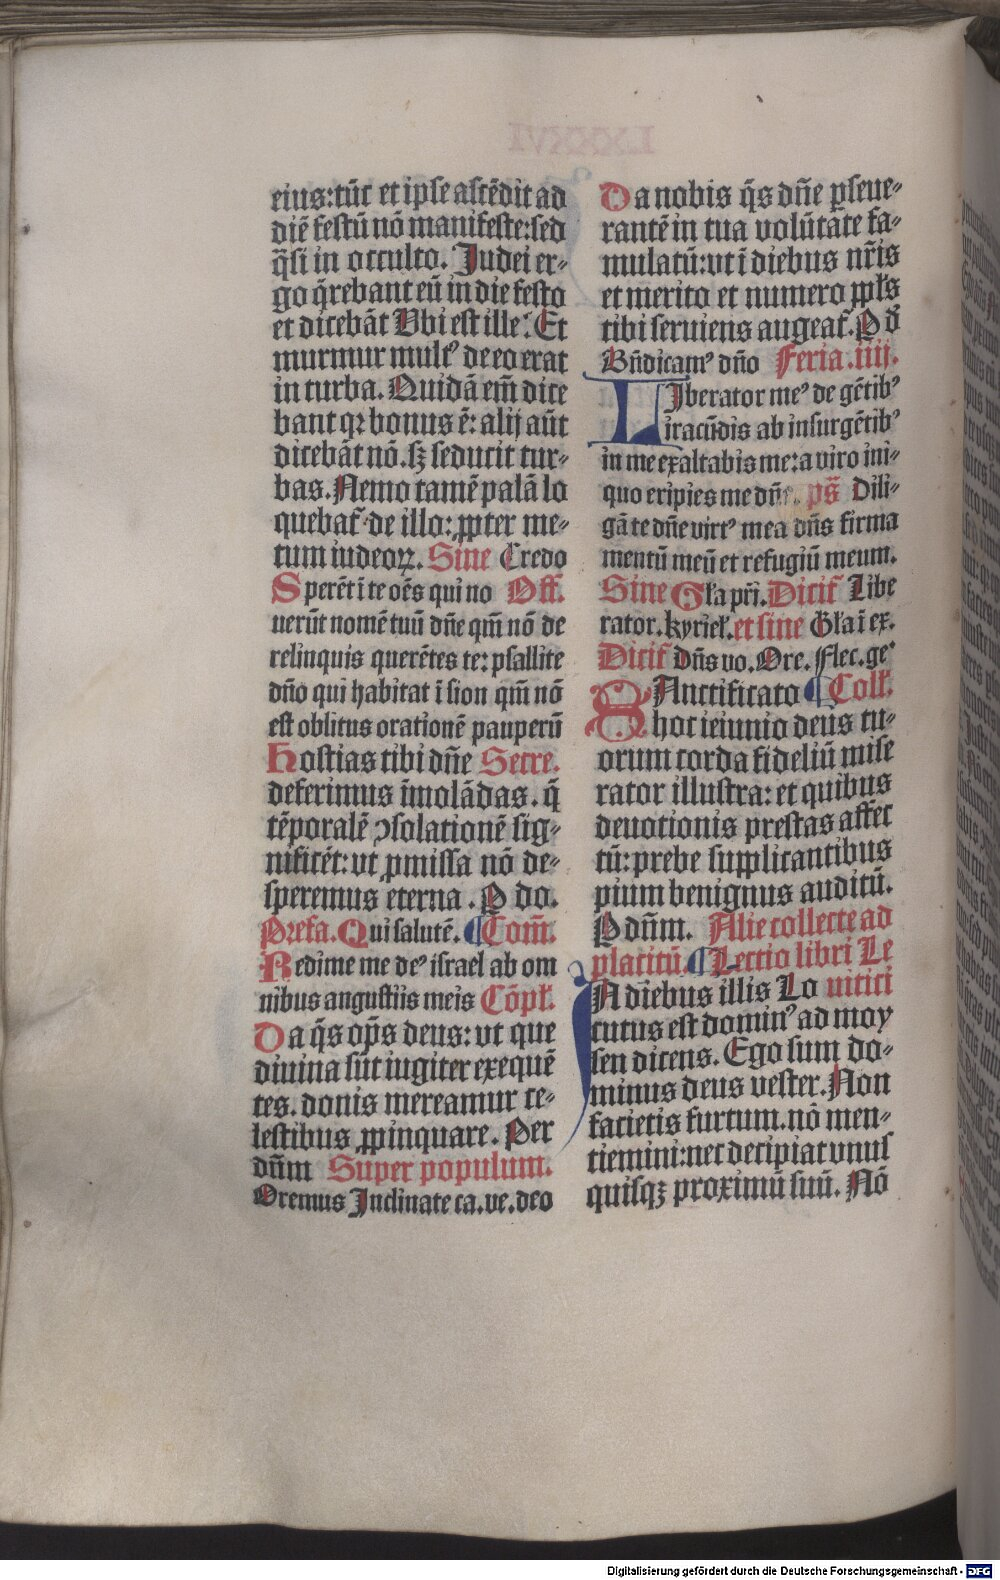 eius:tūc et ipse ascēdit ad
diē festū nō manifeste:sed
q̄si in occulto. Judei er-
go q̄rebant eū in die festo
et dicebāt Vbi est ille? Et
murmur multꝰ de eo erat
in turba. Quidā em̄ dice
bant qꝛ bonus ē: alij aūt
dicebāt nō. sꝫ seducit tur-
bas. Nemo tamē palā lo
quebat᷑ de illo: ꝓpter me-
tum iudeoꝝ. Sine Credo
Sperēt ī te oēs qui no Off̄.
uerūt nomē tuū dn̄e qm̄ nō de
relinquis querētes te: psallite
dn̄o qui habitat ī sion qm̄ nō
est oblitus orationē pauperū
Hostias tibi dn̄e Secre.
deferimus īmolādas. q̄
tēporalē ꝯsolationē sig-
nificēt: vt ꝓmissa nō de-
speremus eterna. P do.
Prefa. Qui salutē. ¶Com̄.
Redime me deꝰ israel ab om
nibus angustiis meis Cōpł.
Da q̄s op̄s deus: vt que
diuina sūt iugiter exequē
tes. donis mereamur ce-
lestibus ꝓpinquare. Per
dūm Super populum.
Oremus Inclinate ca. ve. deo
Da nobis q̄s dn̄e ꝑseue-
rantē in tua volūtate fa-
mulatū: vt ī diebus nr̄is
et merito et numero ppłs
tibi seruiens augeat᷑. P d̄
Bn̄dicamꝰ dn̄o Feria .iiij.
LIberator meꝰ de gētibꝰ
iracūdis ab insurgētibꝰ
in me exaltabis me: a viro ini-
quo eripies me dn̄e. ps̄ Dili-
gā te dn̄e virtꝰ mea dn̄s firma
mentū meū et refugiū meum.
Sine Gła pr̄i. Dicit᷑ Libe
rator. kyrieł. et sine Gła ī ex.
Dicit᷑ dn̄s vo. Ore. Flec. geꝰ
SAnctificato ¶Coll̄.
hoc ieiunio deus tu-
orum corda fideliū mise
rator illustra: et quibus
deuotionis prestas affec
tū: prebe supplicantibus
pium benignus auditū.
P dūm. Alie collecte ad
placitū. ¶Lectio libri Le
IN diebus illis Lo uitici
cutus est dominꝰ ad moy
sen dicens. Ego sum do-
minus deus vester. Non
facietis furtum. nō men-
tiemini: nec decipiat vnus
quisqꝫ proximū suū. Nō
Digitalisierung gefördert durch die Deutsche Forschungsgemeinschaft - DFG